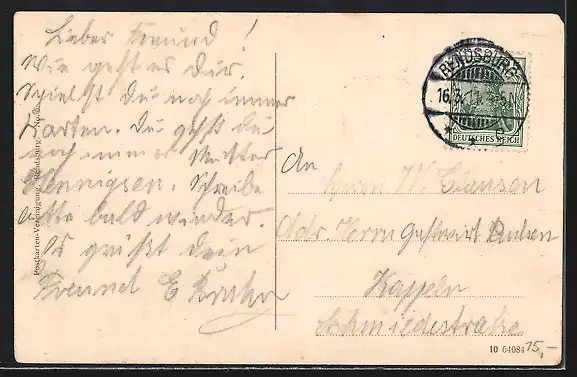 Lieber Freund!
Wie geht es Dir.
Spielst Du noch immer
Karten. Du gehst
noch immer Mutter
Hennigsen. Schreibe
bitte bald wieder.
Es grüßt Dein
Freund E
Postkarten-Vereinigung, Rendsburg
RENDSBURG
16.3.
DEUTSCHES REICH
An
Herrn W. Clausen
Adr. Herrn Gastwirt
Kappeln
Schmiedestraße
10 64084
15,-